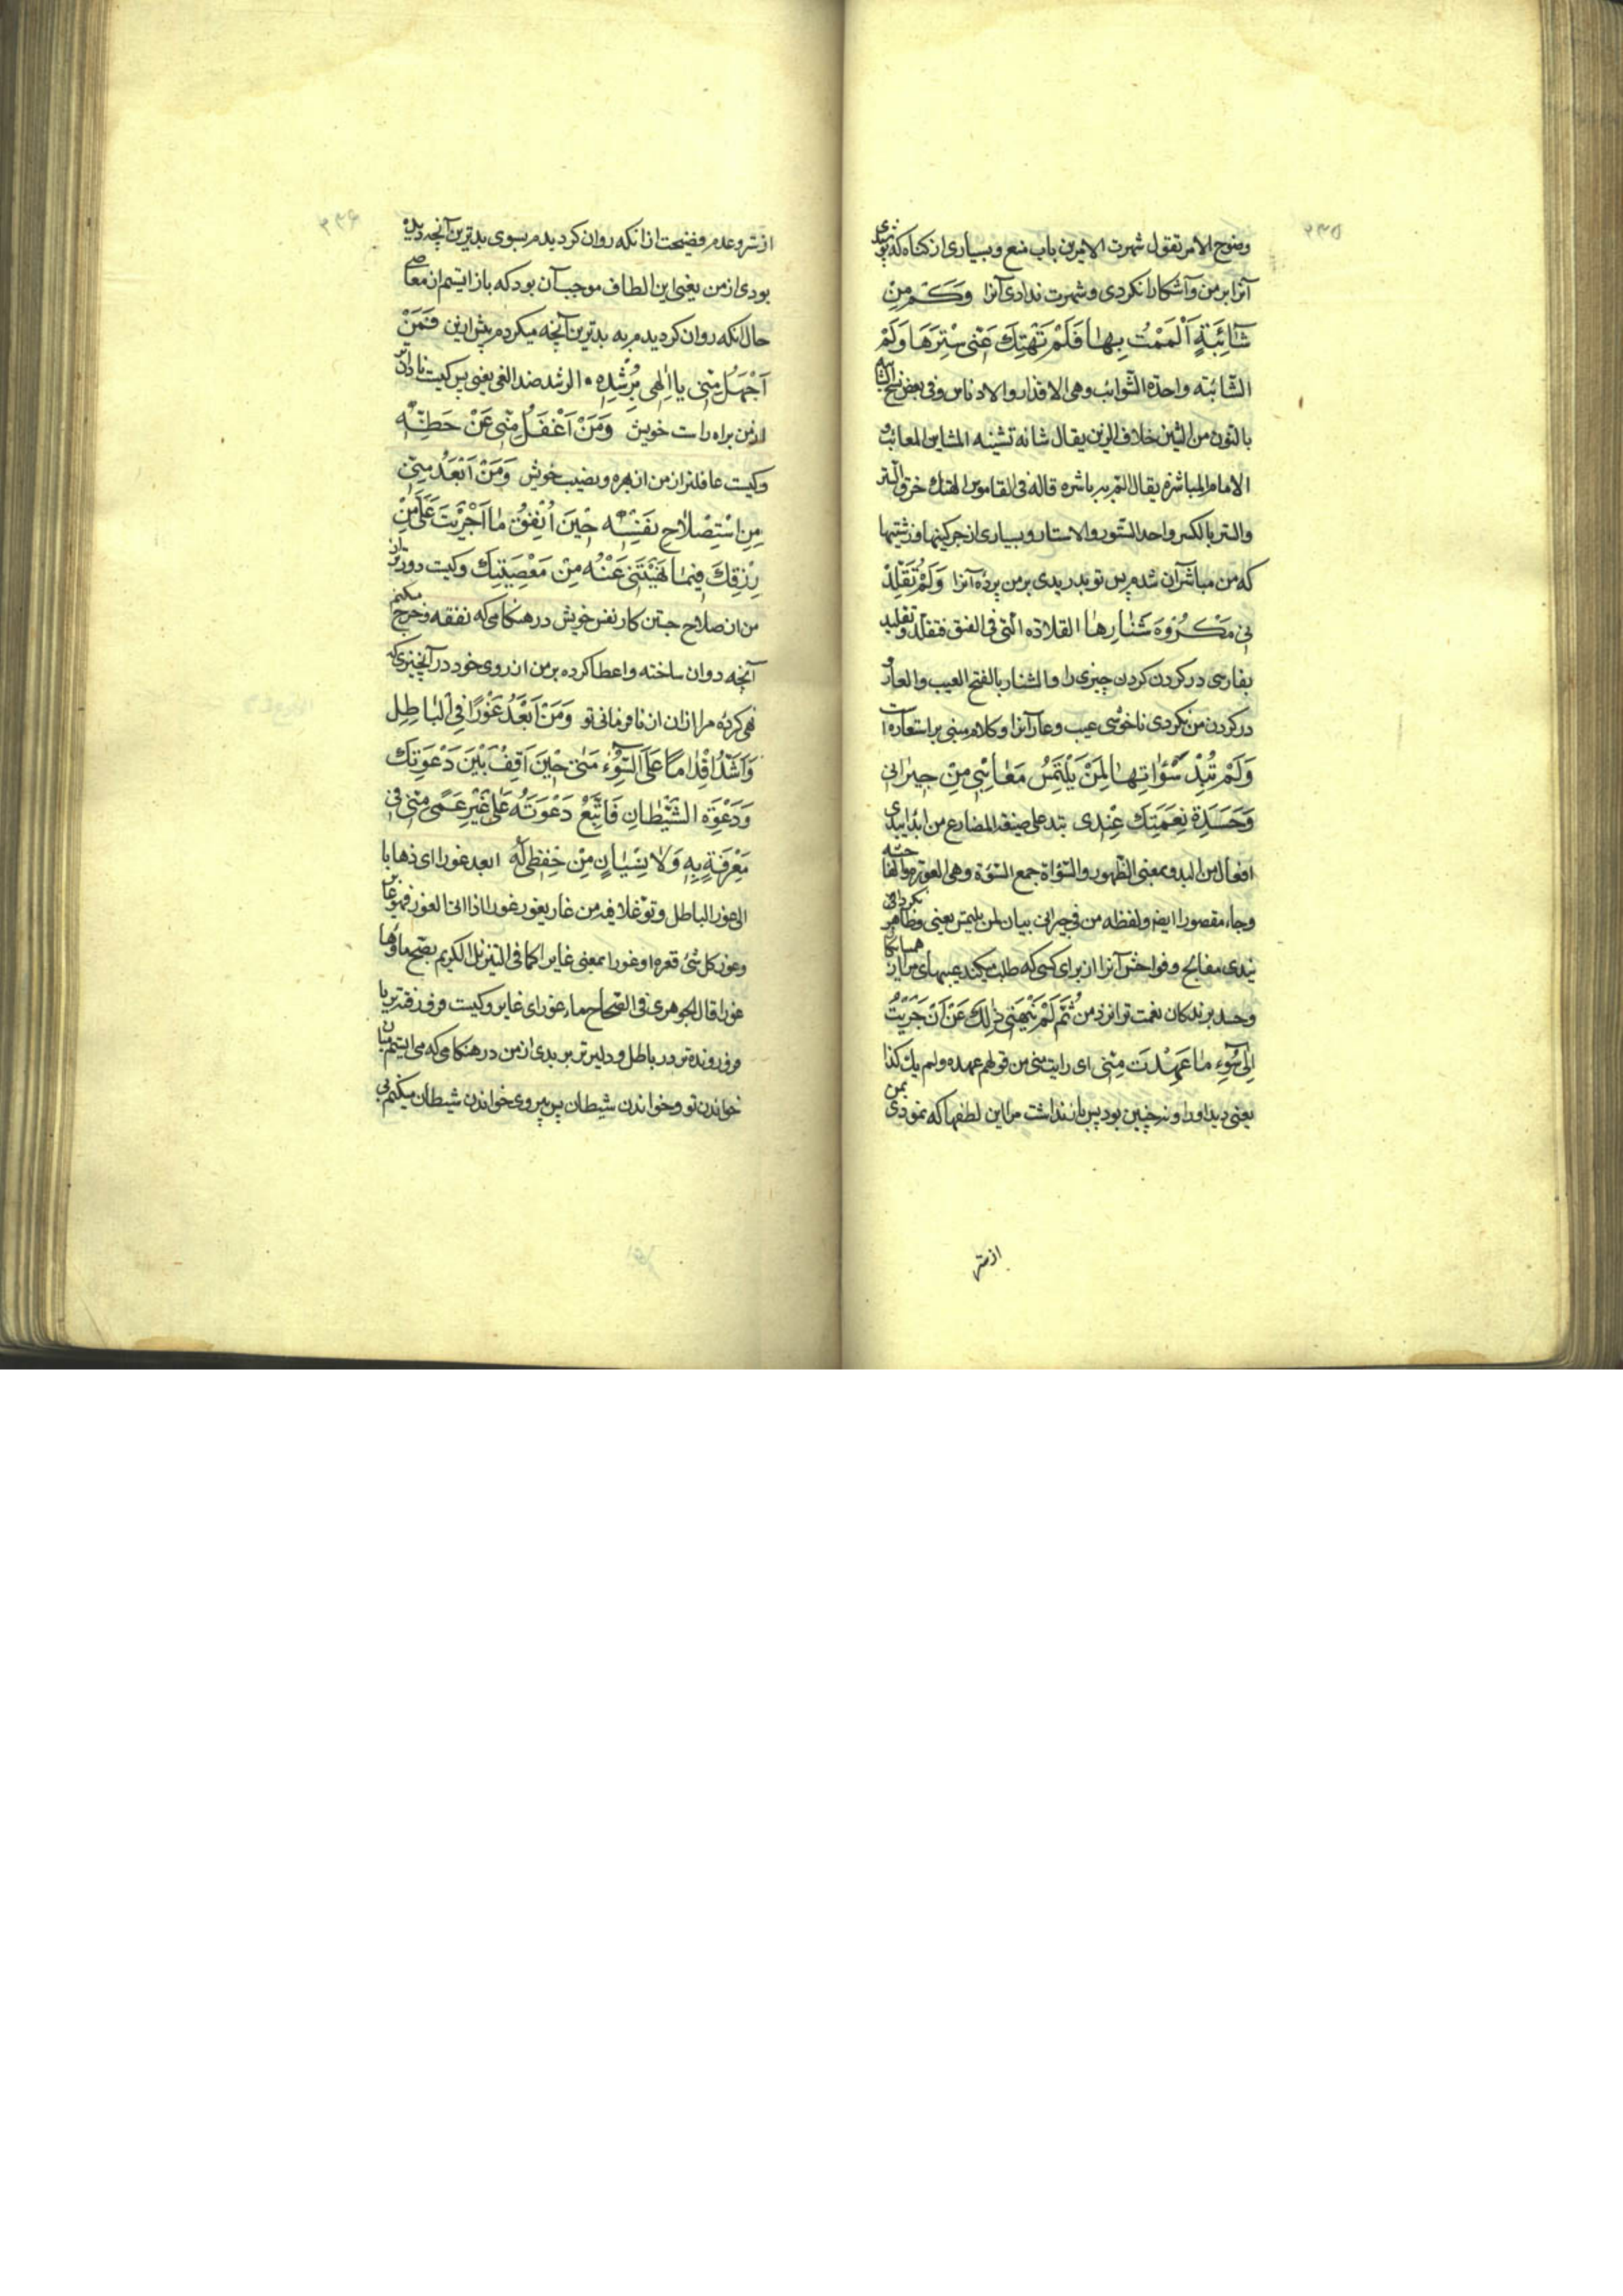 وضوح الامر تقول شهرت الامر من باب منع و بسیاری از کناه که پوشیدی
آنرا بر من و آشکارا نکردی و شهرت ندادی آنرا وَكَمْ مِنْ
شَائِبَةٍ اَلْمَمْتُ بِهٰا فَلَمْ تَهْتِكْ عَنّى سِتْرَهَا وَلَمْ
الشّائبه واحدة الشّوائب وهی الاقذار والادناس وفی بعض نسخ
بالنّون من الشین خلاف الزین یقال شانه تشینه المشاین المعائب و
الالمام المباشرة یقال المّ به باشره قاله فی القاموس الهتك خرق السّتر
والستر بالکسر واحد السّتور والاستار و بسیاری از چرکینها و زشتیها
که من مباشر آن شدم پس تو ندریدی بر من پرده آنرا وَلَمْ تُقَلِّدْ
نى مَكْرُوهَ شَنٰارِهٰا القلادة الّتی فی العنق فتقلّد و تقلید
بفارسی در کردن کردن چیزی را و الشنار بالفتح العیب والعار و
در کردن من نکردی ناخوشی عیب و عار آنرا و کلام مبنی بر استعاره است
وَلَمْ تُبْدِ سَوْاٰتِهٰا لِمَنْ يَلْتَمِسُ مَعٰائِبى مِنْ جِيرٰانى
وَحَسَدَةِ نِعْمَتِكَ عِنْدى تبد علی صیغة المضارع من ابدا یبدی
افعال من البدو بمعنی الظّهور والسّؤاة جمع السّوءة وهی العورة والفاحشه
وجاء مقصورا ایضا ولفظه من فی جیرانی بیان لمن یلتمس یعنی و ظاهر نکردانی
نیدی مقابح و فواحش آنرا از برای کسی که طلب میکند عیبهای مرا از همسایکان
و حسد برندکان نعمت تو نزد من ثُمَّ لَمْ يَنْهَنى ذٰلِكَ عَنْ اَنْ جَرَيْتُ
اِلٰى سُوءِ مٰا عَهِدْتَ مِنّى ای رایت منی من قولهم عهده ولم یك کذا
یعنی دید او را و نه چنین بود پس باز نداشت مرا این لطفها که نمودی بمن
از ستر
از ستر و عدم فضیحت از انکه روان کردیدم بسوی بدترین آنچه دیده
بودی از من یعنی این الطاف موجب آن بود که باز ایستم از معاصی
حال انکه روان کردیدم به بدترین آنچه میکردم پیش ازین فَمَنْ
اَجْهَلُ مِنّى يا اِلٰهى بِرُشْدِهِ الرشد ضد الغی یعنی پس کیست نادان تر
از من براه راست خویش وَمَنْ اَغْفَلُ مِنّى عَنْ حَظِّهِ
وکیست غافلتر از من از بهره و نصیب خویش وَمَنْ اَبْعَدُ مِنّى
مِنِ اسْتِصْلٰاحِ نَفْسِهِ حينَ اُنْفِقُ مٰا اَجْرَيْتَ عَلَىَّ مِنْ
رِزْقِكَ فيمٰا نَهَيْتَنى عَنْهُ مِنْ مَعْصِيَتِكَ وکیست دورتر از
من از صلاح جستن کار نفس خویش در هنکامی که نفقه و خرج میکنم
آنچه روان ساخته و اعطا کرده بر من از روی خود در آنچیزی که
نهی کرده مرا از ان از نافرمانی تو وَمَنْ اَبْعَدُ غَوْرًا فِى الْبٰاطِلِ
وَاَشَدُّ اِقْدٰامًا عَلَى السُّوءِ مِنّى حينَ اَقِفُ بَيْنَ دَعْوَتِكَ
وَدَعْوَةِ الشَّيْطٰانِ فَاَتَّبِعُ دَعْوَتَهُ عَلٰى غَيْرِ عَمًى مِنّى فى
مَعْرِفَةٍ بِهِ وَلٰا نِسْيٰانٍ مِنْ حِفْظى لَهُ ابعد غورا ای ذهابا
الی غور الباطل و توغلا فیه من غار یغور غورا اذا اتی الغور فهو غایر
وغور کل شئ قعره او غورا بمعنی غایرا کما فی التنزیل الکریم یصبح ماؤها
غورا قال الجوهری فی الصّحاح ماء غور ای غایر و کیست فرو رفته تر یا
فرو رونده تر در باطل و دلیر تر بر بدی از من در هنکامی که می ایستم میان
خواندن تو و خواندن شیطان پس پیروی خواندن شیطان میکنم بی